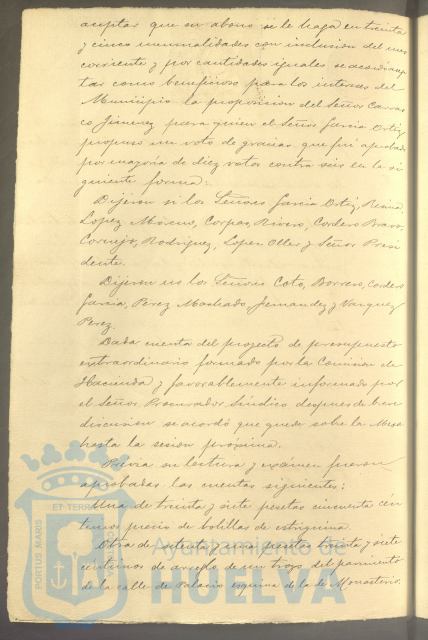 aceptar que su abono se le haga en treinta
y cinco mensualidades con inclusion del mes
corriente y por cantidades iguales, se acordó acep
tar como beneficioso para los intereses del
Municipio la proposicion del Señor Carras
co Jimenez para quien el Señor Garcia Ortiz
propuso un voto de gracias que fué aprobado
por mayoría de diez votos contra seis en la si
guiente forma:
Dijeron si los Señores Garcia Ortiz, Reina,
Lopez Moreno, Corpas, Rivero, Cordero Bravo,
Cornejo, Rodriguez, Lopez Oller y Señor Presi
dente.
Dijeron no los Señores Coto, Borrero, Cordero
Garcia, Perez Machado, Jernandez y Vazquez
Perez.
Dada cuenta del proyecto de presupuesto
extraordinario formado por la Comision de
Hacienda y favorablemente informado por
el Señor Procurador Síndico despues de
discusion se acordó que quede sobre la Mesa
hasta la sesion proxima.
Previa su lectura y exámen fueron
aprobadas las cuentas siguientes:
Una de treinta y siete pesetas cincuenta cén
timos precio de bolillas de estrignina.
Otra de setenta y una pesetas treinta y siete
céntimos de arreglo de un trozo del pavimento
de la calle de Palacio esquina de la de Monasterio.
PORTUS MARIS
ET TERRA
Ayuntamiento de
HUELVA